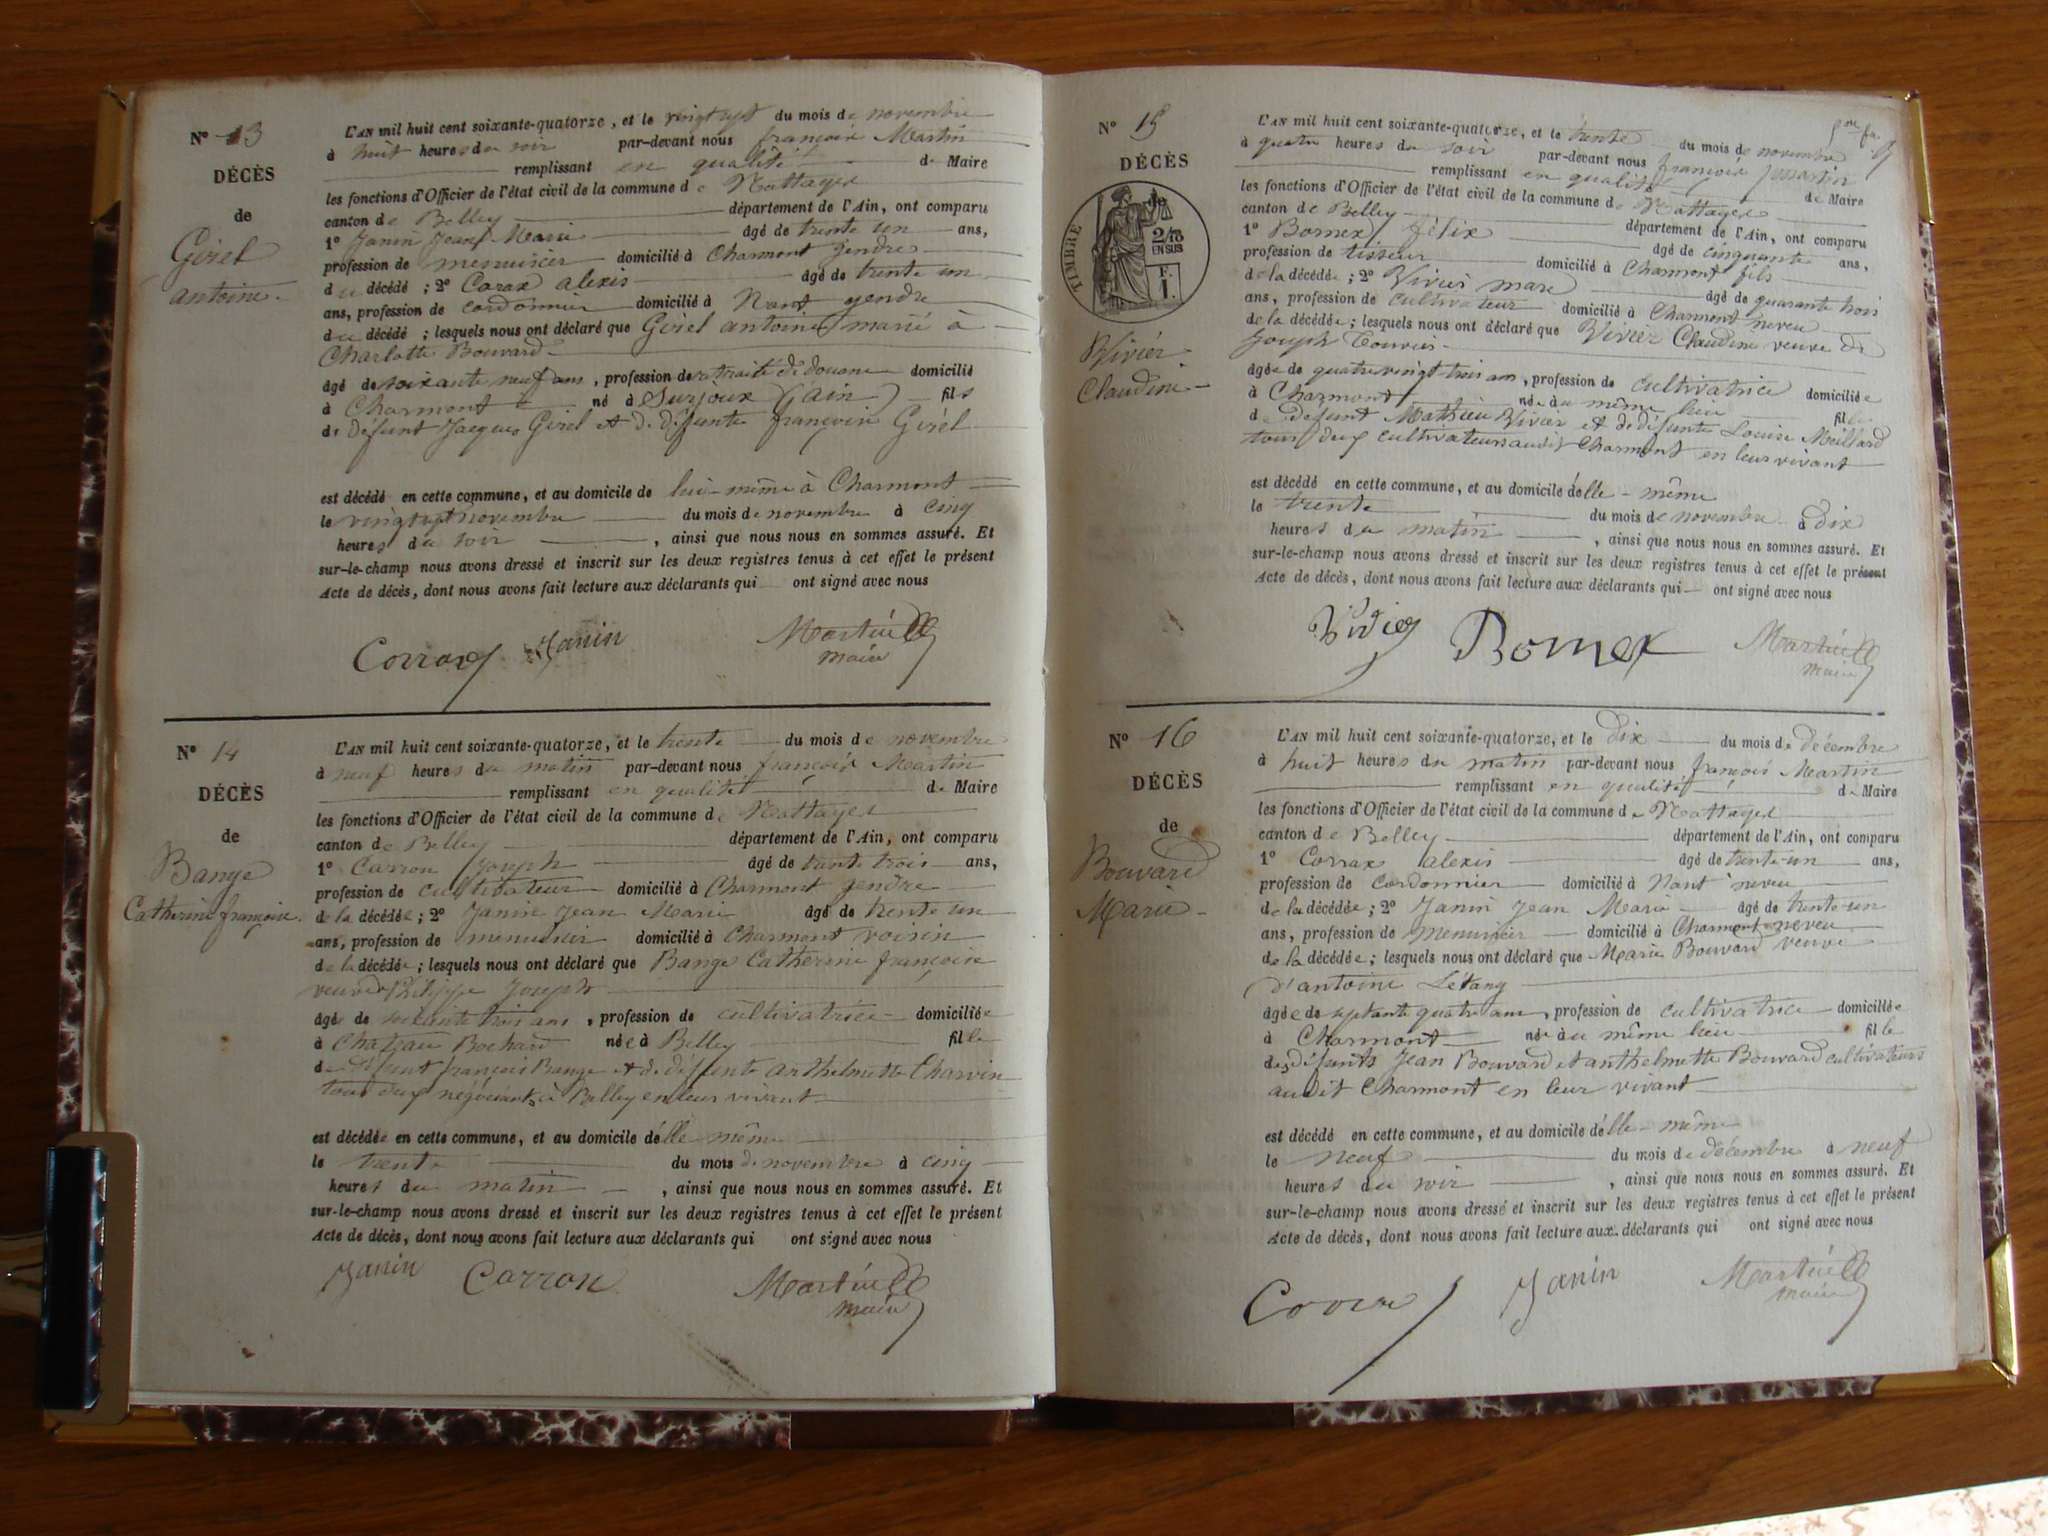 N° 13
DÉCÈS
de
Girel
antoine
L'AN mil huit cent soixante-quatorze, et le vingt sept du mois de novembre
à huit heures du soir par-devant nous françois Martin
remplissant en qualité de Maire
les fonctions d'Officier de l'état civil de la commune de Nattages
canton de Belley département de l'Ain, ont comparu
1° Janin Jean Marie âgé de trente un ans,
profession de menuisier domicilié à Charmont gendre
du décédé ; 2° Corax alexis âgé de trente un
ans, profession de cordonnier domicilié à Nant gendre
du décédé ; lesquels nous ont déclaré que Girel antoine marié à
Charlotte Bouvard
âgé de soixante neuf ans, profession de retraité de douane domicilié
à Charmont né à Surjoux (ain) fils
de défunt Jacques Girel et de défunte françoise Girel
est décédé en cette commune, et au domicile de lui-même à Charmont
le vingt sept novembre du mois de novembre à cinq
heures du soir , ainsi que nous nous en sommes assuré. Et
sur-le-champ nous avons dressé et inscrit sur les deux registres tenus à cet effet le présent
Acte de décès, dont nous avons fait lecture aux déclarants qui ont signé avec nous
Corrax Janin Martin
maire
N° 14
DÉCÈS
de
Bange
Catherine françoise
L'AN mil huit cent soixante-quatorze, et le trente du mois de novembre
à neuf heures du matin par-devant nous françois Martin
remplissant en qualité de Maire
les fonctions d'Officier de l'état civil de la commune de Nattages
canton de Belley département de l'Ain, ont comparu
1° Carron Joseph âgé de trente trois ans,
profession de cultivateur domicilié à Charmont gendre
de la décédée ; 2° Janin Jean Marie âgé de trente un
ans, profession de menuisier domicilié à Charmont voisin
de la décédée ; lesquels nous ont déclaré que Bange Catherine françoise
veuve de Philippe Joseph
âgée de soixante trois ans, profession de cultivatrice domiciliée
à Chateau Bochard née à Belley fille
de défunt françois Bange et de défunte anthelmette Charvin
tous deux négociants à Belley en leur vivant
est décédée en cette commune, et au domicile d'elle même
le trente du mois de novembre à cinq
heures du matin , ainsi que nous nous en sommes assuré. Et
sur-le-champ nous avons dressé et inscrit sur les deux registres tenus à cet effet le présent
Acte de décès, dont nous avons fait lecture aux déclarants qui ont signé avec nous
Janin Carron Martin
maire
N° 15
DÉCÈS
TIMBRE
2/10
EN SUS
F.
1.
Vivier
Claudine
L'AN mil huit cent soixante-quatorze, et le trente du mois de novembre
à quatre heures du soir par-devant nous françois Martin
remplissant en qualité de Maire
les fonctions d'Officier de l'état civil de la commune de Nattages
canton de Belley département de l'Ain, ont comparu
1° Bornex félix âgé de cinquante ans,
profession de tisseur domicilié à Charmont fils
de la décédée ; 2° Vivier marc âgé de quarante trois
ans, profession de cultivateur domicilié à Charmont neveu
de la décédée ; lesquels nous ont déclaré que Vivier Claudine veuve de
Joseph
âgée de quatre vingt-trois ans, profession de cultivatrice domiciliée
à Charmont née au même lieu fille
de défunt Mathieu Vivier et de défunte Louise Meillard
tous deux cultivateurs audit Charmont en leur vivant
est décédé en cette commune, et au domicile d'elle-même
le trente du mois de novembre à dix
heures du matin , ainsi que nous nous en sommes assuré. Et
sur-le-champ nous avons dressé et inscrit sur les deux registres tenus à cet effet le présent
Acte de décès, dont nous avons fait lecture aux déclarants qui ont signé avec nous
Vivier Bornex Martin
maire
N° 16
DÉCÈS
de
Bouvard
Marie
L'AN mil huit cent soixante-quatorze, et le dix du mois de décembre
à huit heures du matin par-devant nous françois Martin
remplissant en qualité de Maire
les fonctions d'Officier de l'état civil de la commune de Nattages
canton de Belley département de l'Ain, ont comparu
1° Corrax alexis âgé de trente-un ans,
profession de cordonnier domicilié à Nant neveu
de la décédée ; 2° Janin Jean Marie âgé de trente-un
ans, profession de menuisier domicilié à Charmont neveu
de la décédée ; lesquels nous ont déclaré que Marie Bouvard veuve
d'antoine Létang
âgée de septante quatre ans, profession de cultivatrice domiciliée
à Charmont née au même lieu fille
des défunts Jean Bouvard et anthelmette Bouvard cultivateurs
audit Charmont en leur vivant
est décédé en cette commune, et au domicile d'elle-même
le neuf du mois de décembre à neuf
heures du soir , ainsi que nous nous en sommes assuré. Et
sur-le-champ nous avons dressé et inscrit sur les deux registres tenus à cet effet le présent
Acte de décès, dont nous avons fait lecture aux déclarants qui ont signé avec nous
Corrax Janin Martin
maire